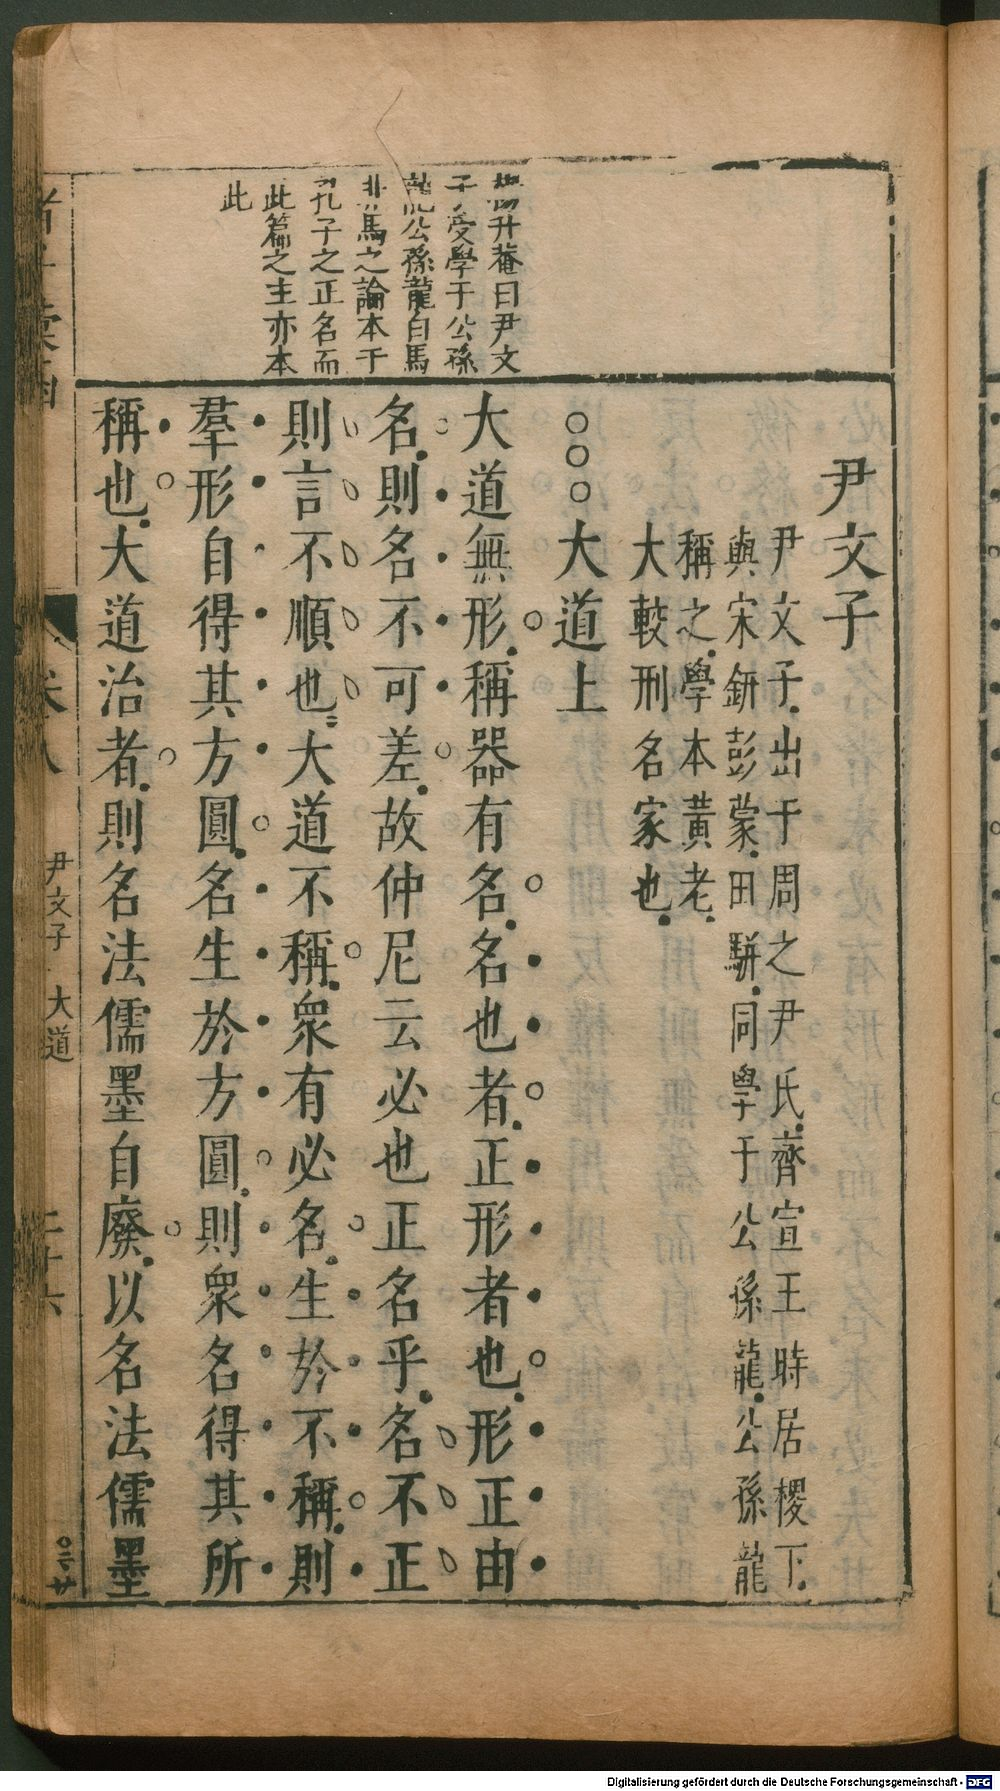 楊升菴曰尹文
子受學于公孫
龍公孫龍白馬
非馬之論本于
孔子之正名而
此篇之主亦本
此
尹文子
尹文子出于周之尹氏齊宣王時居稷下
與宋鈃彭蒙田駢同學于公孫龍公孫龍
稱之學本黃老
大較刑名家也
○○○大道上
大道無形稱器有名名也者正形者也形正由
名則名不可差故仲尼云必也正名乎名不正
則言不順也大道不稱衆有必名生於不稱則
羣形自得其方圓名生於方圓則衆名得其所
稱也大道治者則名法儒墨自廢以名法儒墨
尹文子 大道
二十六
Digitalisierung gefördert durch die Deutsche Forschungsgemeinschaft - DFG